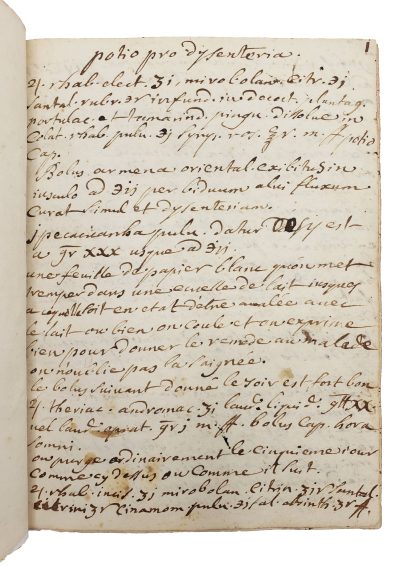 1
potio pro dysenteria.
♃. rhab. elect. ʒi, mirobolan. citr. ʒi
santal. rubr. ʒſ infund. in decoct. plantag.
portulac. et tamarind. pingu. dissolue in
colat. rhab. pulu. ʒi syrup. ros. ʒvi. m. ff potio
cap.
Bolus armena oriental. exibitus in
iusculo a ʒij per biduum alui fluxum
curat simul et dysenteriam.
Ipecacuanha pulu. datur est
a gr xxx usque a ʒij
une feuille de papier blanc qu'on met
tremper dans une ecuelle de lait jusques
a ce qu'elle soit en etat d'etre avalée avec
le lait ou bien on coule et on exprime
bien pour donner le remede au malade
on n'oublie pas la saignée.
le bolus suivant donné le soir est fort bon
♃. theriac. andromac. ʒi laud. liquid. gtt XX
uel laud. opiat. gr j m. ff. bolus cap. hora
somni.
on purge ordinairement le cinquieme iour
comme cy dessus ou comme il suit.
♃. rhab. incis. ʒi mirobolan. citrin. ʒſ santal.
citrini ʒſ cinamom. pulu. ʒi sal. absinth. ʒſ ff.